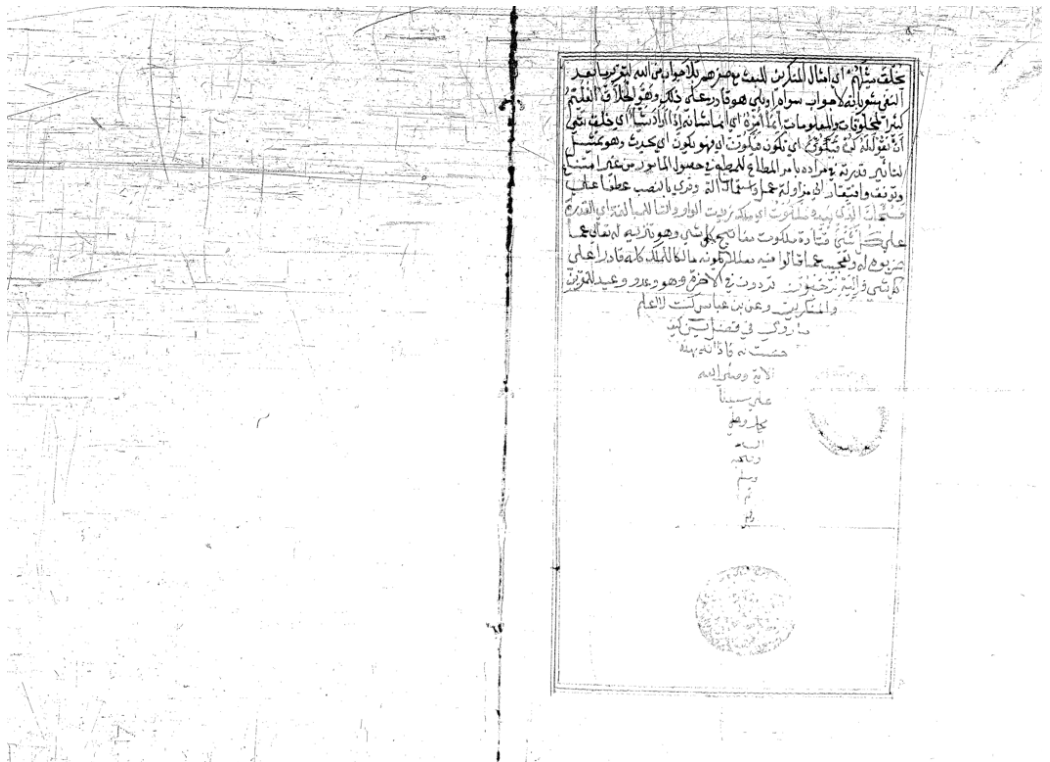 يخلق مثلهم اي امثال المنكرين للبعث من الله لتقريرها بعد
النفي مشعر بانه لا جواب سواه اي بلي هو قادر على ذلك وهو الخلاق العليم
كثير المخلوقات والمعلومات انما امره اي انما شانه اذا اراد شيا اي خلق شي
ان نقول له كن فيكون اي تكون فيكون اي فهو يكون اي يحدث وهو تمثيل
لتاثير قدرته في مراده بامر المطاع للمطيع في حصول المامور من غير امتناع
وتوقف وافتقار الي مزاولة عمل واستعمال الة وقري بالنصب عطفا على
فسبحان الذي بيده ملكوت اي ملك زيدت الواو والتا للمبالغة اي القدرة
على كل شي قتادة ملكوت مفاتيح كل شي وهو تنزيه له تعالى عما
ضربوه له وتعجيب عما قالوا فيه معللا بكونه مالكا للملك كله قادرا على
كل شي واليه ترجعون تردون في الاخرة وهو وعد ووعيد للمقرين
والمنكرين وعن بن عباس كنت لا اعلم
ما روي في فضل يس كيف
خصت به فاذا انه بهذه
الاية وصلى الله
على سيدنا
محمد وعلى
اله
وصحبه
وسلم
تم